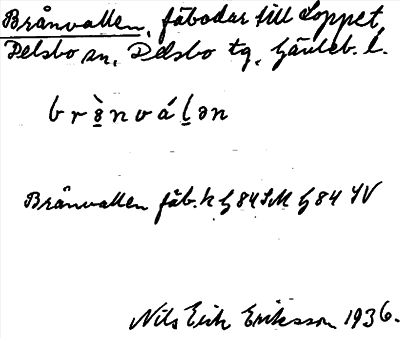 Brånvallen, fäbodar till Loppet,
Delsbo sn, Delsbo tg, Gävleb. l.
brò̱nválən
Brånvallen fäb. h G 84 SM G 84 SV
Nils Erik Eriksson 1936.